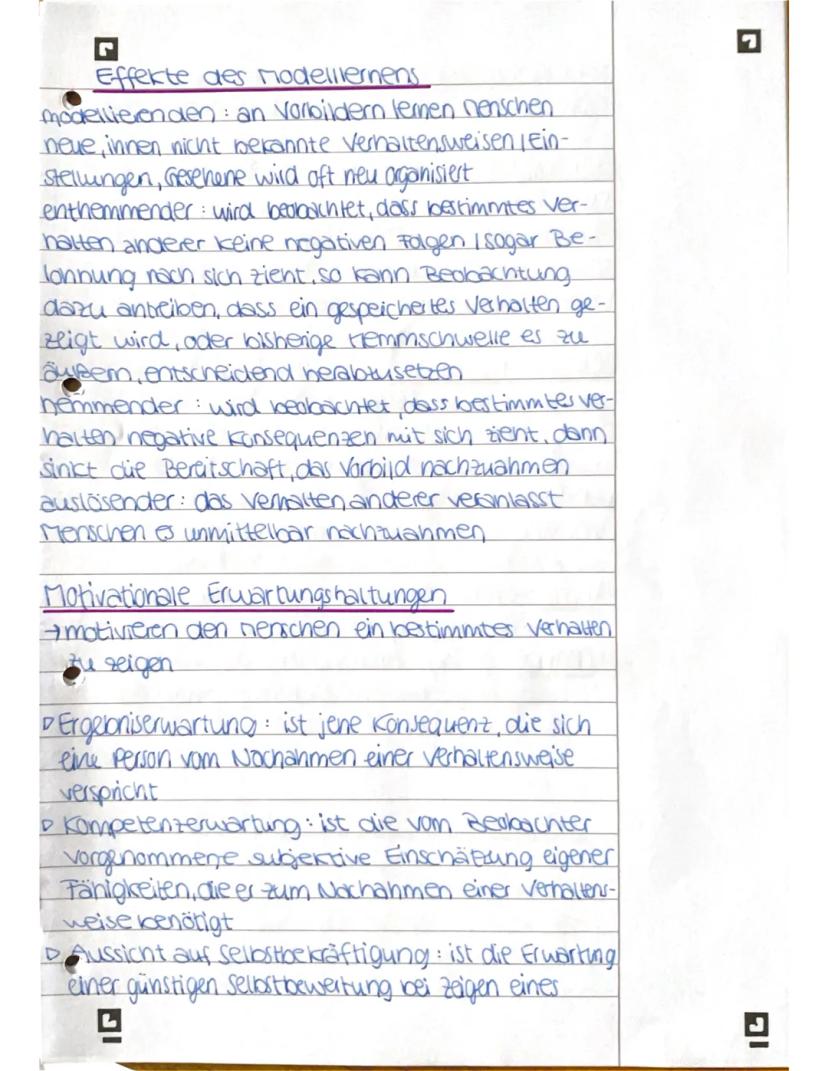 Effekte des Modelllernens
modellierenden : an Vorbildern lernen Menschen
neue, ihnen nicht bekannte Verhaltensweisen / Ein-
stellungen, Gesehene wird oft neu organisiert
enthemmender : wird beobachtet, dass bestimmtes Ver-
halten anderer keine negativen Folgen / sogar Be-
lohnung nach sich zieht, so kann Beobachtung
dazu antreiben, dass ein gespeichertes Verhalten ge-
zeigt wird, oder bisherige Hemmschwelle es zu
äußern, entscheidend herabzusetzen
hemmender : wird beobachtet, dass bestimmtes Ver-
halten negative Konsequenzen mit sich zieht, dann
sinkt die Bereitschaft, das Vorbild nachzuahmen
auslösender : das Verhalten anderer veranlasst
Menschen es unmittelbar nachzuahmen
Motivationale Erwartungshaltungen
→ motivieren den Menschen ein bestimmtes Verhalten
zu zeigen
▷ Ergebniserwartung : ist jene Konsequenz, die sich
eine Person vom Nachahmen einer Verhaltensweise
verspricht
▷ Kompetenzerwartung : ist die vom Beobachter
vorgenommene subjektive Einschätzung eigener
Fähigkeiten, die er zum Nachahmen einer Verhaltens-
weise benötigt
▷ Aussicht auf Selbstbekräftigung : ist die Erwartung
einer günstigen Selbstbewertung bei zeigen eines